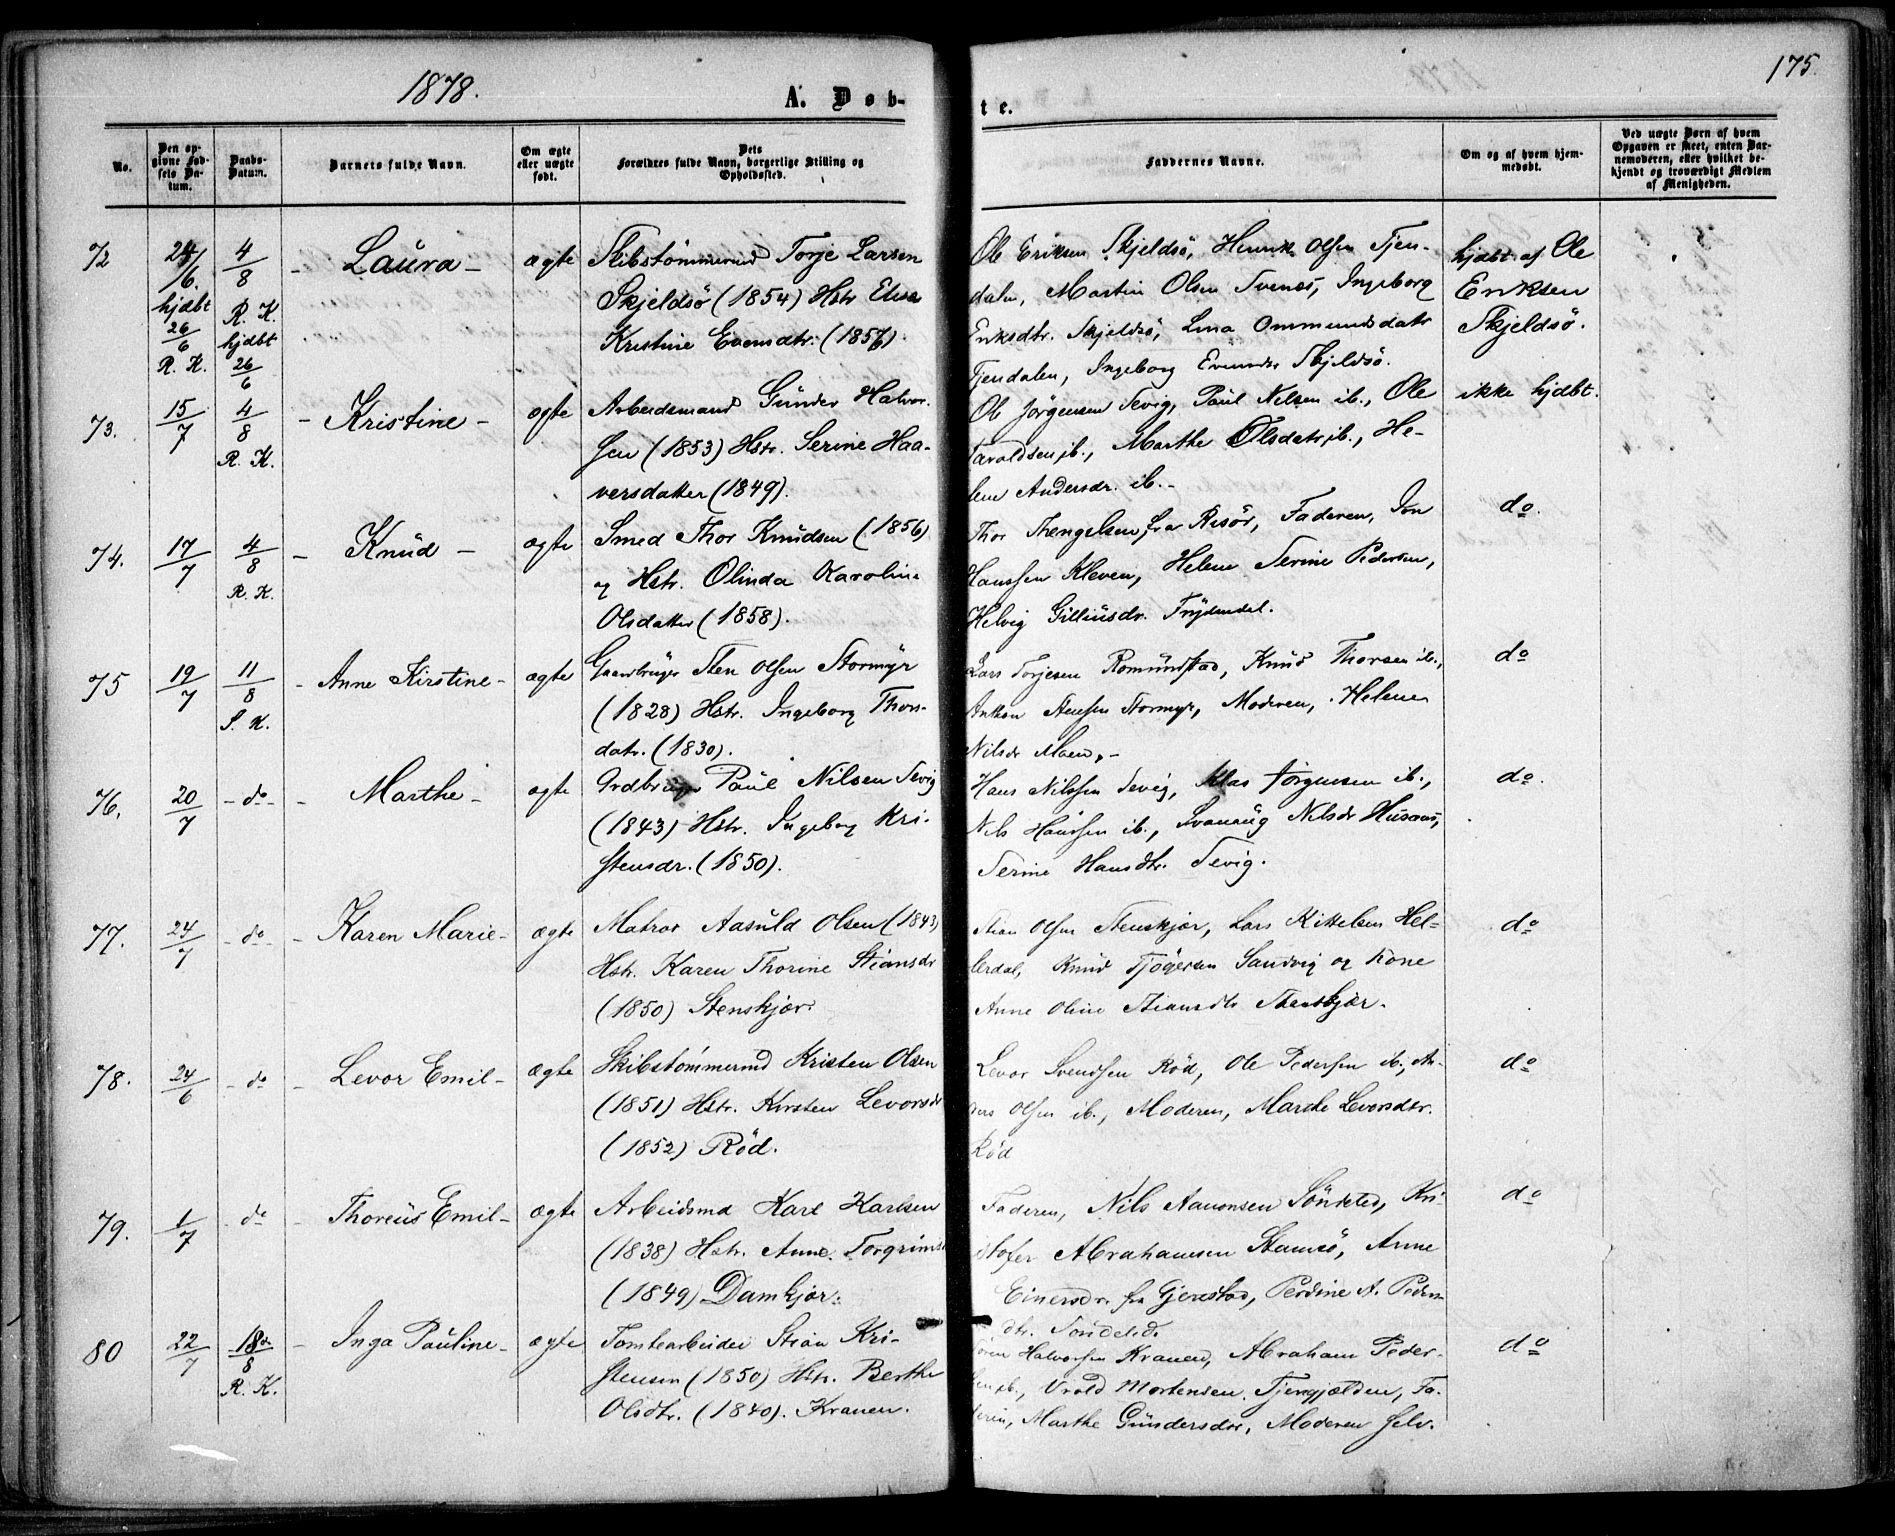 1878.
A. Døb-
te.
175.
No.
Den op-
givne Fød-
sels Da-
tum.
Daabs-
Datum.
Barnets fulde Navn.
Om ægte
eller uægte
født.
Dets
Forældres fulde Navn, borgerlige Stilling og
Opholdssted.
Faddernes Navne.
Om og af hvem hjem-
medøbt.
Ved uægte Børn af hvem
Opgaven er skeet, enten Bar-
nemoderen, eller hvilket be-
kjendt og troværdigt Medlem
af Menigheden.
72
24/6.
hjdbt
26/6
R. K.
4/8
R. K.
hjdbt
26/6
Laura
ægte
Skibstømmermd Torje Larsen
Skjeldsö (1854) Hstr.
Kristine (1857)
Ole Eriksen Skjeldsö, Henrik Olsen Fjen-
dalen, Martin Olsen Svenes, Ingeborg
Eriksdtr. Skjeldsö, Lina Ommundsdatr
Fjendalen, Ingeborg Skjeldsö.
hjdbt. af Ole
Eriksen
Skjeldsö.
73.
15/7
4/8
R. K.
Kristine
ægte
Arbeidsmand Gunder Halvor-
sen (1853) Hstr. Serine Haa-
versdatter (1849).
Ole Jörgensen Sevig, Paul Nilsen ib., Ole
Taraldsen ib., Marthe Olsdatr ib., He-
lene Andersdr. ib.
ikke hjdbt.
74.
17/7
4/8
R. K.
Knud
ægte
Smed Thor Knudsen (1856)
og Hstr. Olinda Karoline
Olsdatter (1858).
Thor Thengelsen fra Risör, Faderen, Jon
Hanssen Kleven, Helene Serine Pedersen,
Helvig Frydendal.
do.
75
19/7
11/8
S. K.
Anne Kirstine
ægte
Gaardbruger Sten Olsen Stormyr
(1828) Hstr. Ingeborg Thors-
datr. (1830).
Lars Torjesen Romundstad, Knud Thorsen ib.,
Anthon Stensen Stormyr, Moderen, Helene
Nilsdr Moen.
do
76.
20/7
do
Marthe
ægte
Grdbruger Paul Nilsen Sevig
(1843) Hstr. Ingeborg Kri-
stensdr. (1850).
Hans Nilssen Sevig, Klas Jörgensen ib.,
Nils Hanssen ib., Svanaug Nilsdr Husaas,
Serine Hansdtr. Sevig.
do.
77.
24/7
do
Karen Marie
ægte
Matros Aasuld Olsen (1843)
Hstr. Karen Thorine Stiansdr
(1850) Stenskjær.
Stian Olsen Stenskjær, Lars Kittelsen Hel-
lerdal, Knud Sandvig og Kone
Anne Oline Stiansdtr Stenskjær.
do
78.
24/6
do
Levor Emil
ægte
Skibstømmermd Kristen Olsen
(1851) Hstr. Kirsten Levorsdr
(1852) Röd.
Levor Svendsen Röd, Ole Pedersen ib., An-
ders Olsen ib., Moderen, Marthe Levorsdtr.
Röd
do
79.
1/7
do
Thoreus Emil
ægte
Arbeidsmd Karl Karlsen
(1838) Hstr. Anne Torgrimsd
(1849) Damkjær.
Faderen, Nils Aanonsen Söndeled, Kri-
stofer Abrahamsen Stamsö, Anne
Einersdr. fra Gjerestad, Perdine A. Peders-
dtr. Söndeled.
do
80
22/7
18de/8
R. K.
Inga Pauline
ægte
Tomtearbeider Stian Kri-
stensen (1850) Hstr. Berthe
Olsdtr. (1840). Kranen.
Sören Halvorsen Kranen, Abraham Peder-
sen ib., Vrold Mortensen Fjengjælden, Fa-
deren, Marthe Gundersdtr, Moderen selv.
do